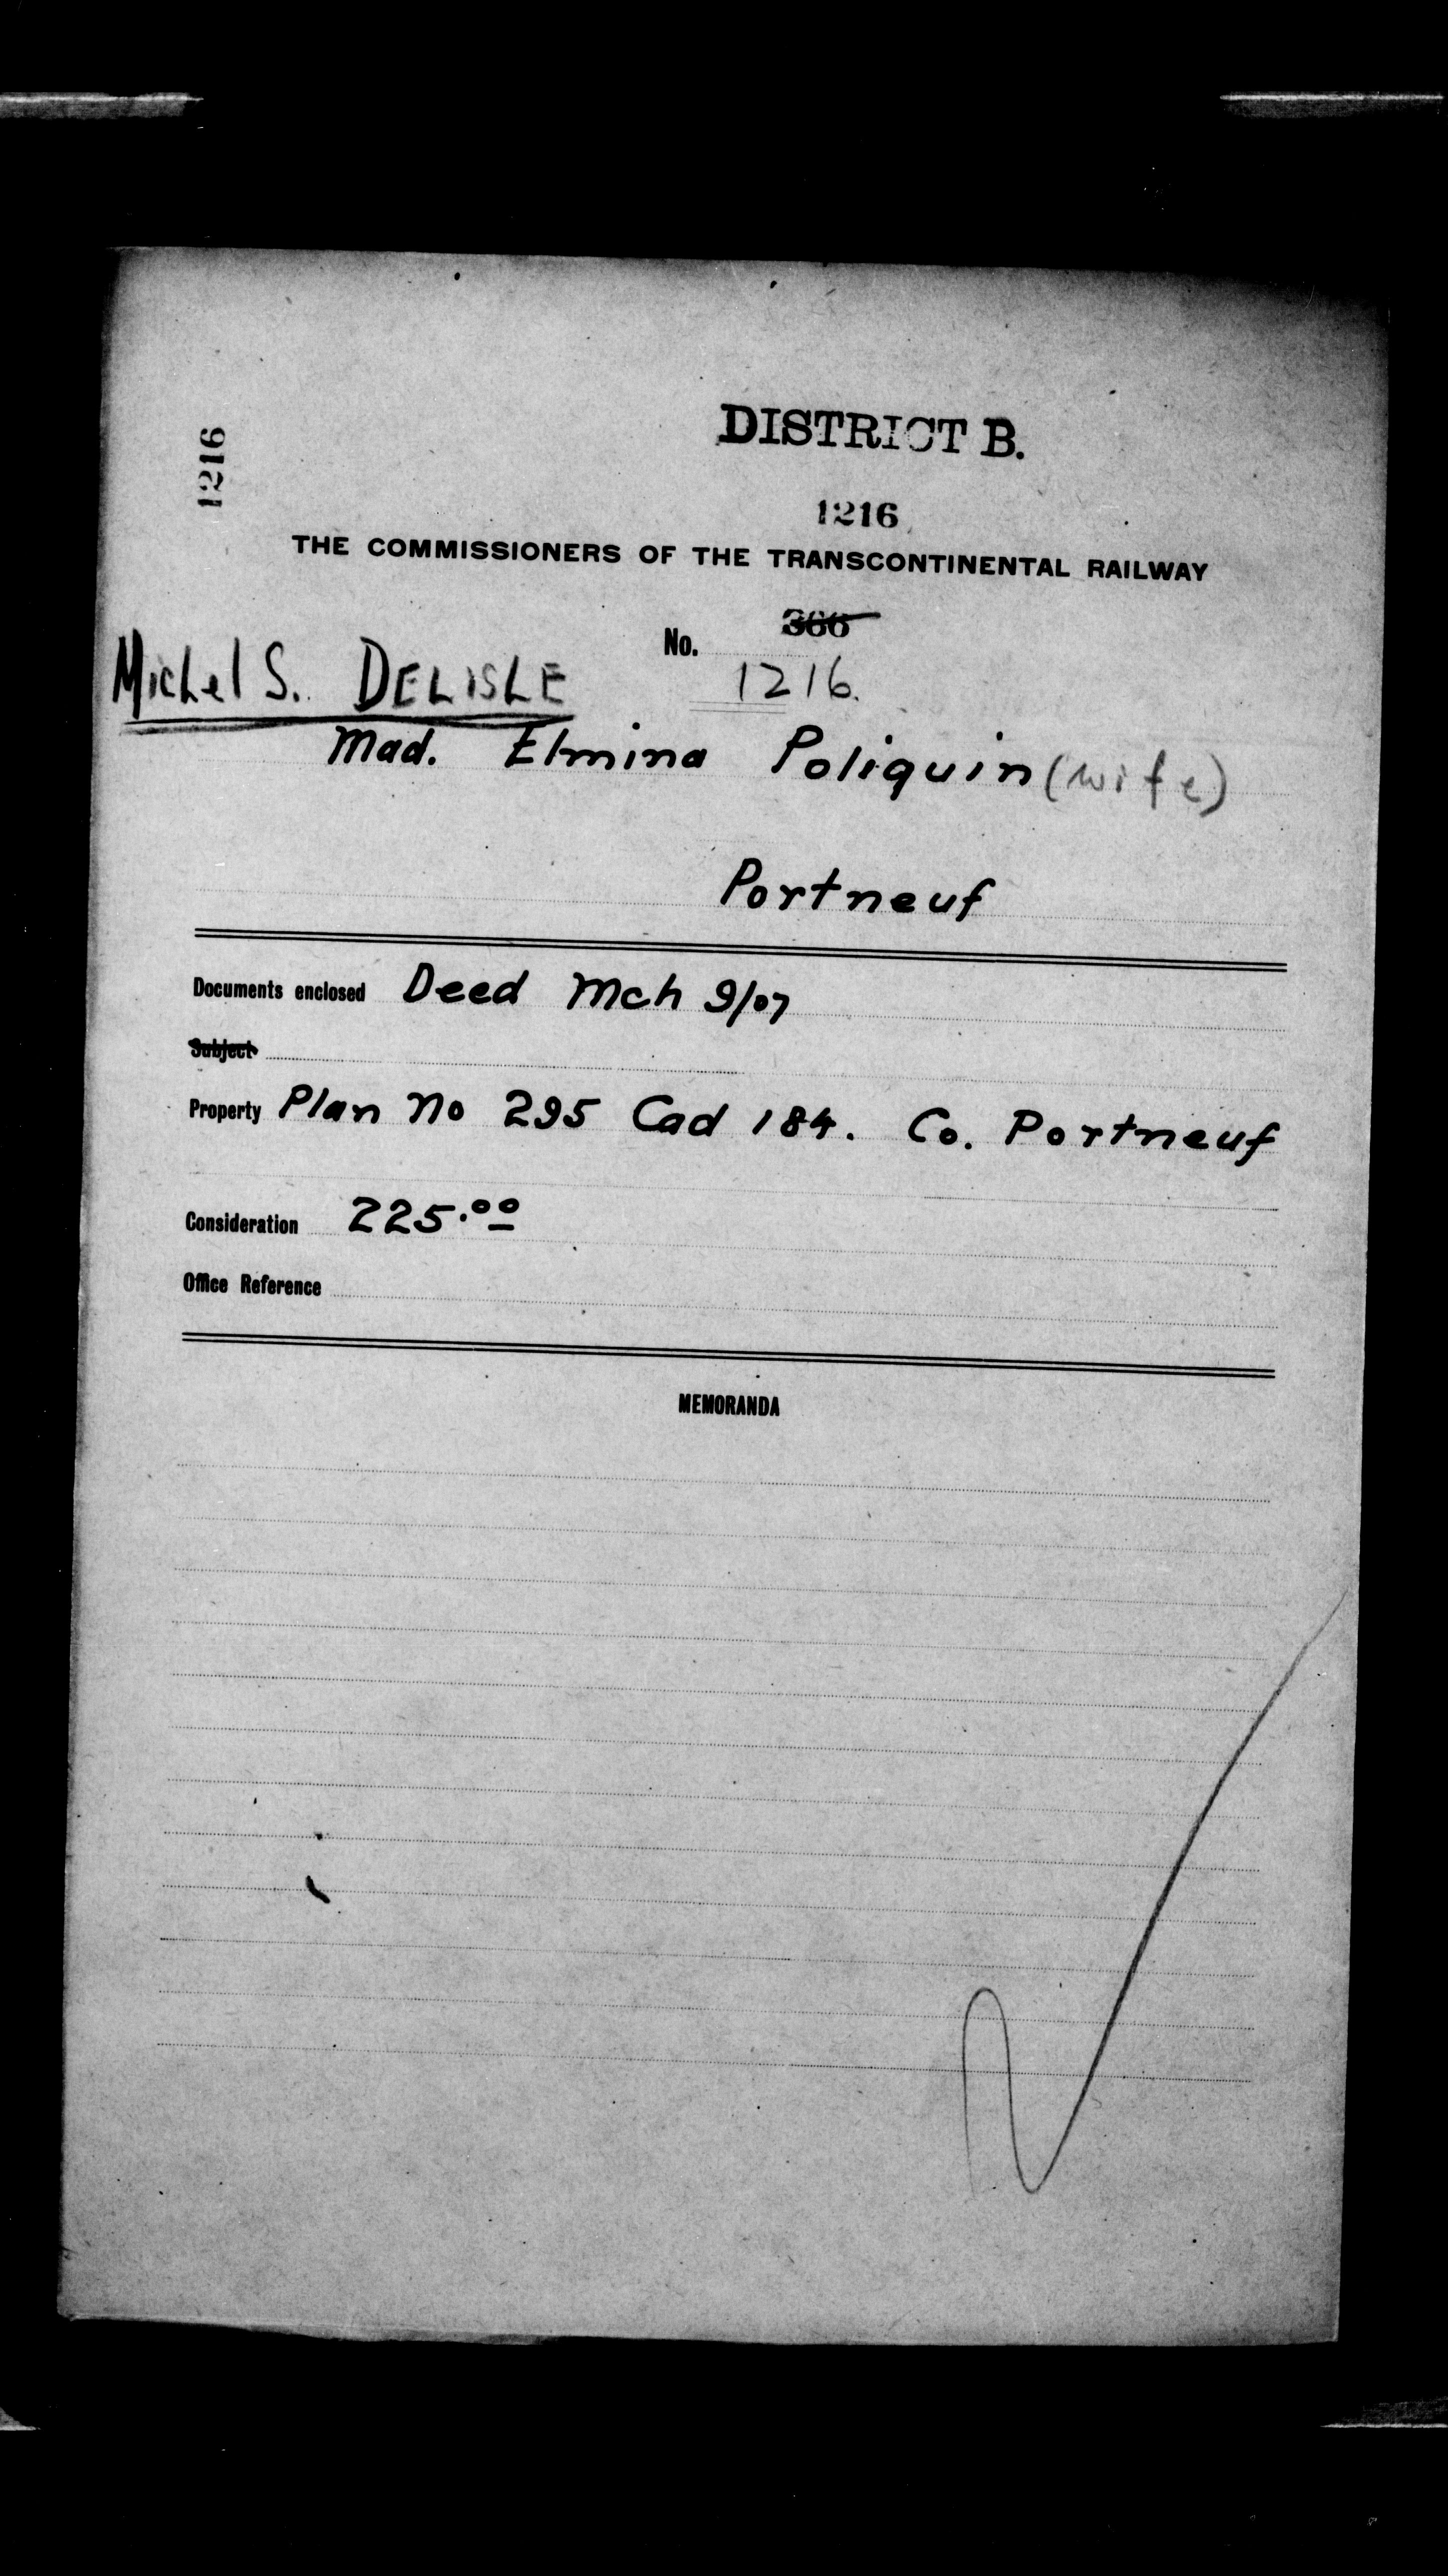 DISTRICT B.
1216
1216
THE COMMISSIONERS OF THE TRANSCONTINENTAL RAILWAY
No. 366
1216.
Michel S. DELISLE
Mad. Elmina Poliquin (wife)
Portneuf
Documents enclosed Deed Mch 9/07
Subject
Property Plan No 295 Cad 184. Co. Portneuf
Consideration 225.00
Office Reference
MEMORANDA